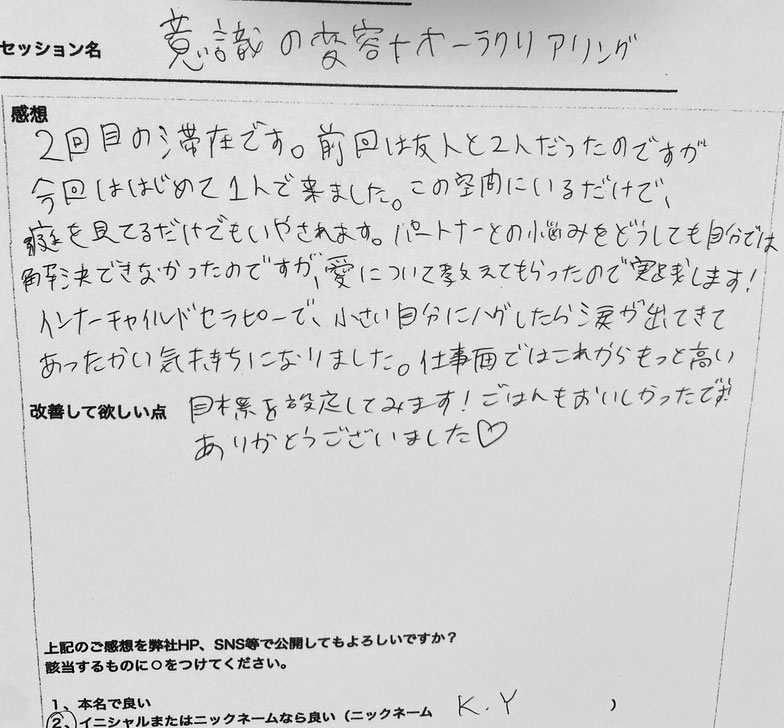 セッション名 意識の変容+オーラクリアリング
感想
2回目の滞在です。前回は友人と2人だったのですが
今回ははじめて1人で来ました。この空間にいるだけで、
庭を見てるだけでもいやされます。パートナーとの悩みをどうしても自分では
解決できなかったのですが、愛について教えてもらったので実践します!
インナーチャイルドセラピーで、小さい自分にハグしたら涙が出てきて
あったかい気持ちになりました。仕事面ではこれからもっと高い
改善して欲しい点 目標を設定してみます!ごはんもおいしかったです
ありがとうございました♡
上記のご感想を弊社HP、SNS等で公開してもよろしいですか?
該当するものに○をつけてください。
1、本名で良い
2、イニシャルまたはニックネームなら良い(ニックネーム K.Y )